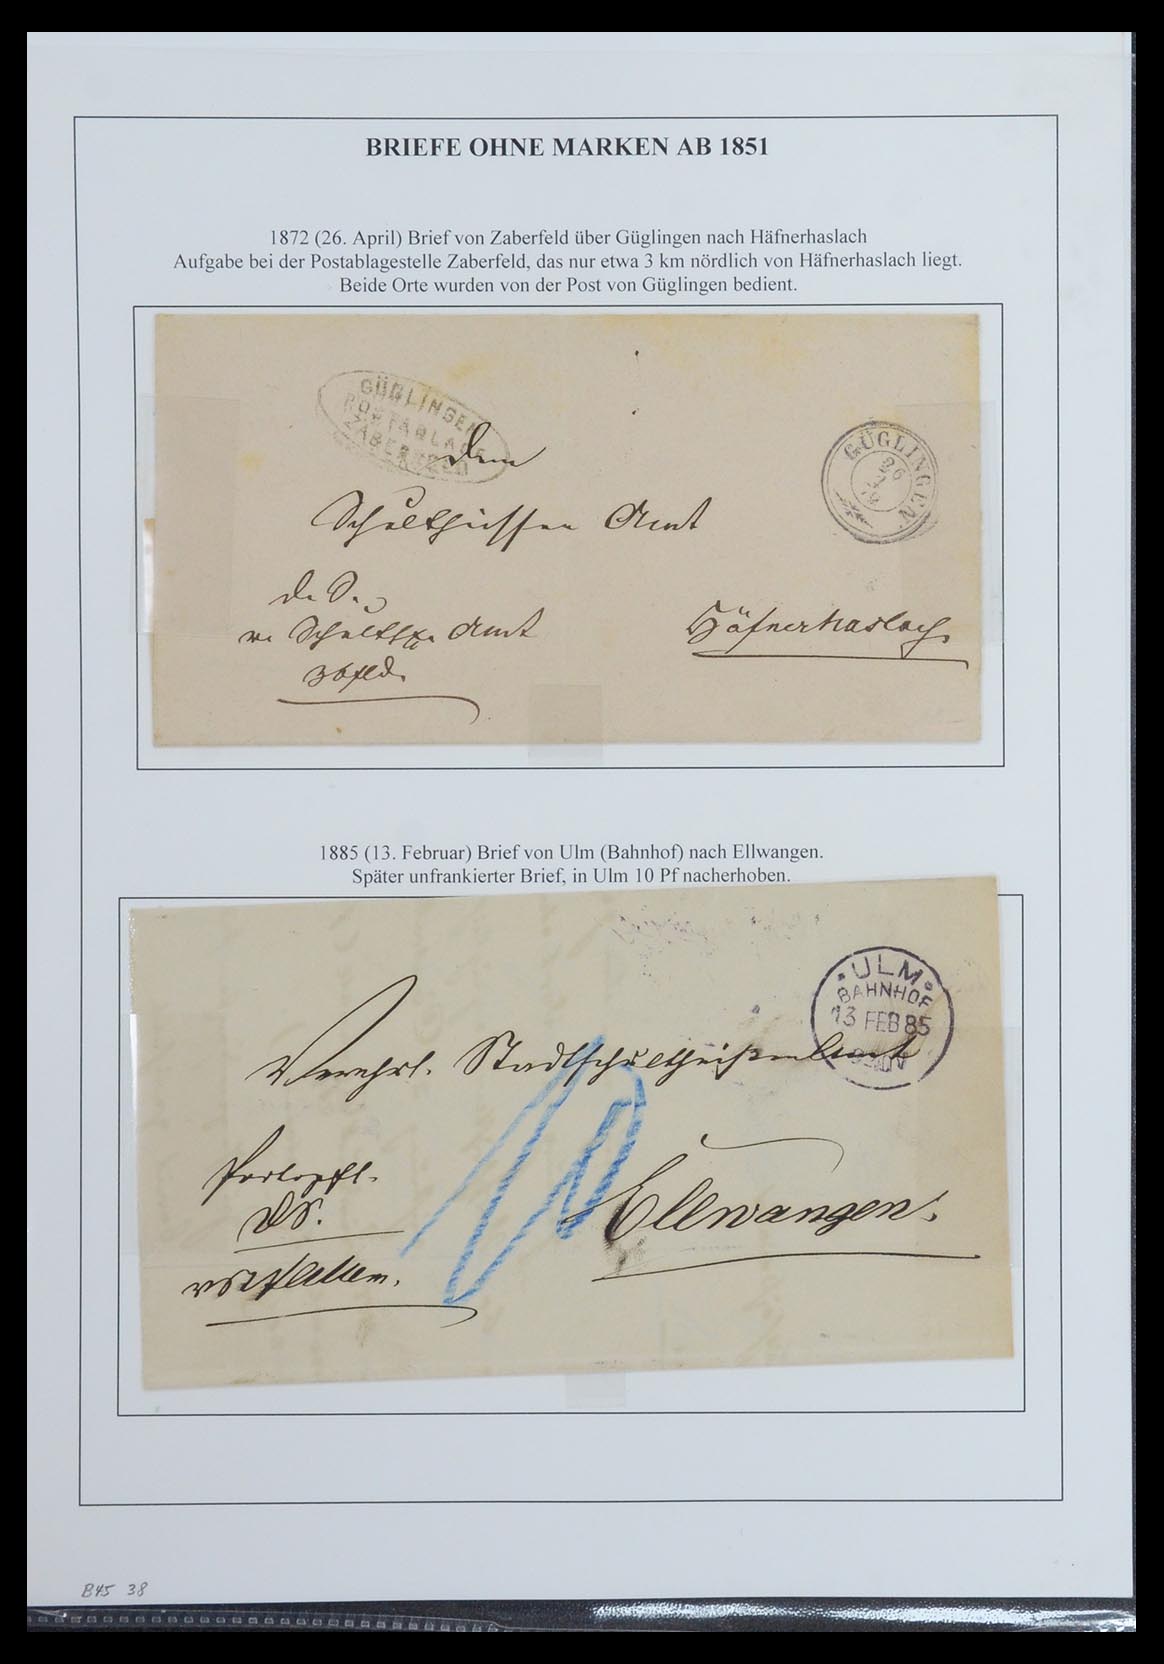 BRIEFE OHNE MARKEN AB 1851
1872 (26. April) Brief von Zaberfeld über Güglingen nach Häfnerhaslach
Aufgabe bei der Postablagestelle Zaberfeld, das nur etwa 3 km nördlich von Häfnerhaslach liegt.
Beide Orte wurden von der Post von Güglingen bedient.
GÜGLINGEN
POSTABLAGE
ZABERFELD
GÜGLINGEN
26
Dem
Schultheissen Amt
d. S.
Amt
Häfnerhaslach
1885 (13. Februar) Brief von Ulm (Bahnhof) nach Ellwangen.
Später unfrankierter Brief, in Ulm 10 Pf nacherhoben.
ULM
BAHNHOF
13 FEB 85
Verehrl. Stadtschultheißenamt
10
Portopfl.
DS.
Ellwangen.
B45 38